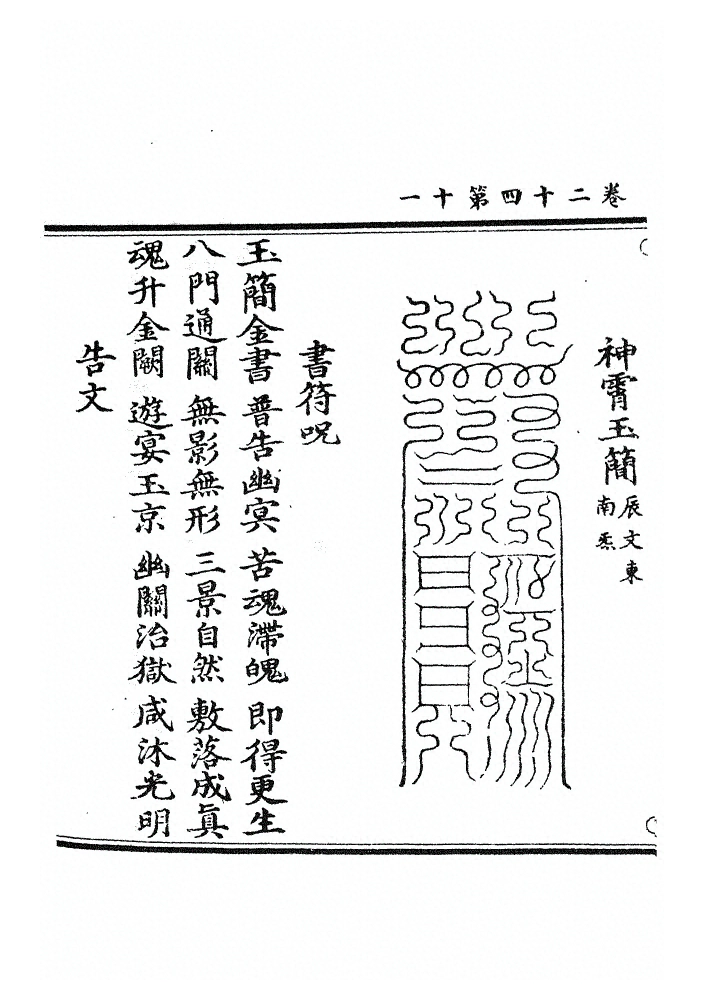 卷二十四第十一
神霄玉簡
辰文東
南炁
書符呪
玉簡金書 普告幽冥 苦魂滯魄 即得更生
八門通關 無影無形 三景自然 敷落成眞
魂升金闕 遊宴玉京 幽關治獄 咸沐光明
告文